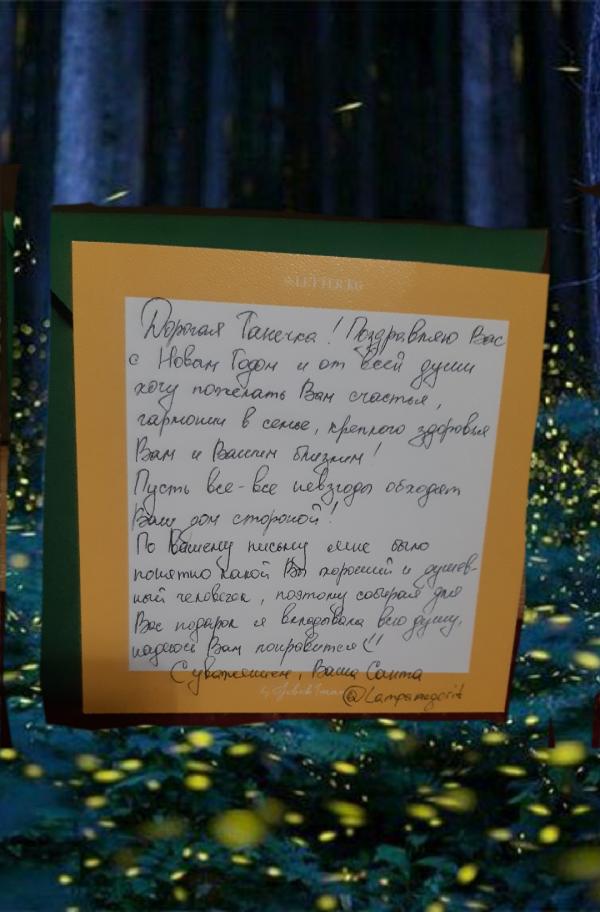 LETTER.KG
Дорогая Танечка! Поздравляю Вас
с Новым Годом и от всей души
хочу пожелать Вам счастья,
гармонии в семье, крепкого здоровья
Вам и Вашим близким!
Пусть все-все невзгоды обходят
Ваш дом стороной!
По Вашему письму мне было
понятно какой Вы хороший и душев-
ный человечек, поэтому собирая для
Вас подарок я вкладывала всю душу,
надеюсь Вам понравится(!!
С уважением, Ваша Санта
by @
@Lampamegorit